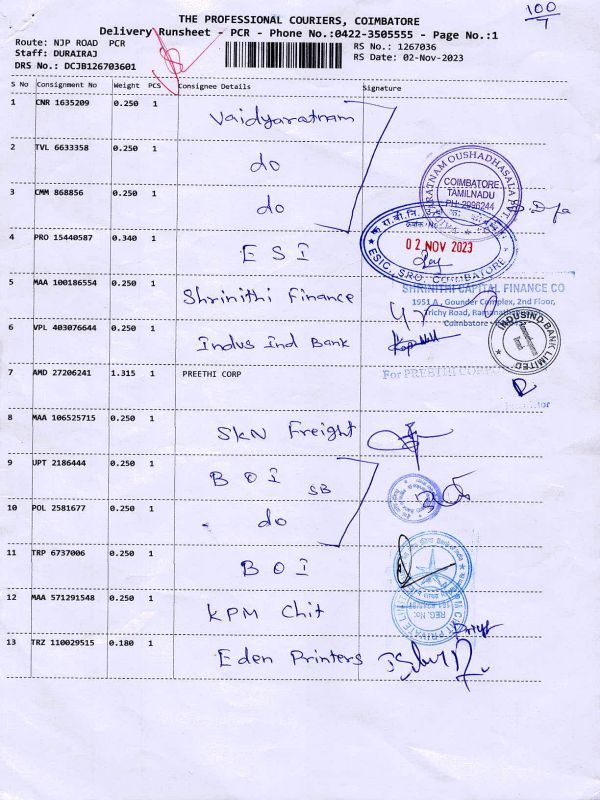 100
THE PROFESSIONAL COURIERS, COIMBATORE
Delivery Runsheet - PCR - Phone No.:0422-3505555 - Page No.:1
Route: NJP ROAD PCR
Staff: DURAIRAJ
DRS No.: DCJB126703601
RS No.: 1267036
RS Date: 02-Nov-2023
S No Consignment No Weight PCS Consignee Details Signature
1 CNR 1635209 0.250 1 Vaidyaratnam
2 TVL 6633358 0.250 1 do
3 CMM 868856 0.250 1 do
COIMBATORE
TAMILNADU
PH: 2996244
4 PRO 15440587 0.340 1 E S I
02 NOV 2023
ESIC, SRO, COIMBATORE
5 MAA 100186554 0.250 1 Shrinithi Finance
SHRINITHI CAPITAL FINANCE CO
1951 A, Gounder Complex, 2nd Floor,
Trichy Road,
Coimbatore
6 VPL 403076644 0.250 1 Indus Ind Bank
INDUSIND BANK LIMITED
7 AMD 27206241 1.315 1 PREETHI CORP
For PREETHI
8 MAA 106525715 0.250 1 SKN Freight
9 UPT 2186444 0.250 1 B O I SB
10 POL 2581677 0.250 1 do
11 TRP 6737006 0.250 1 B O I
12 MAA 571291548 0.250 1 KPM Chit
REG. No:
13 TRZ 110029515 0.180 1 Eden Printers